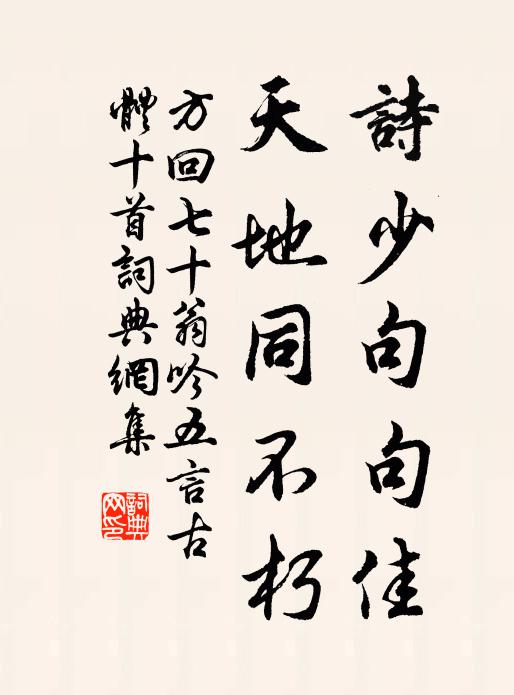 詩少句句佳
天地同不朽
方回七十翁吟五言古
體十首詞典網集
詞典網印